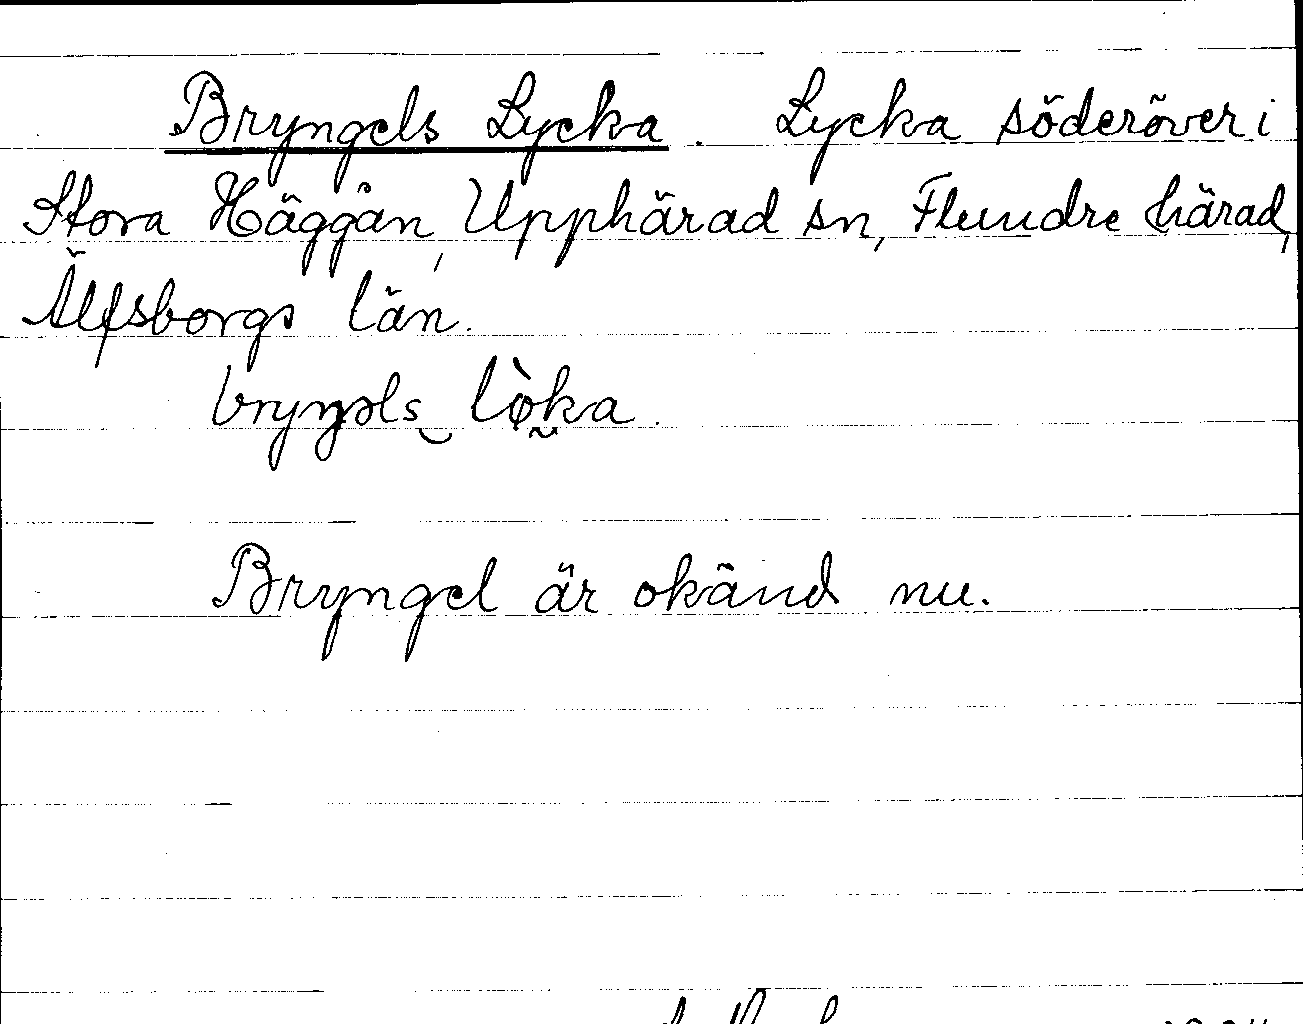 Bryngels Lycka. Lycka söderöver i
Stora Häggån, Upphärad sn, Flundre härad,
Älfsborgs län.
bryŋəls‿ lø̀ka.
Bryngel är okänd nu.